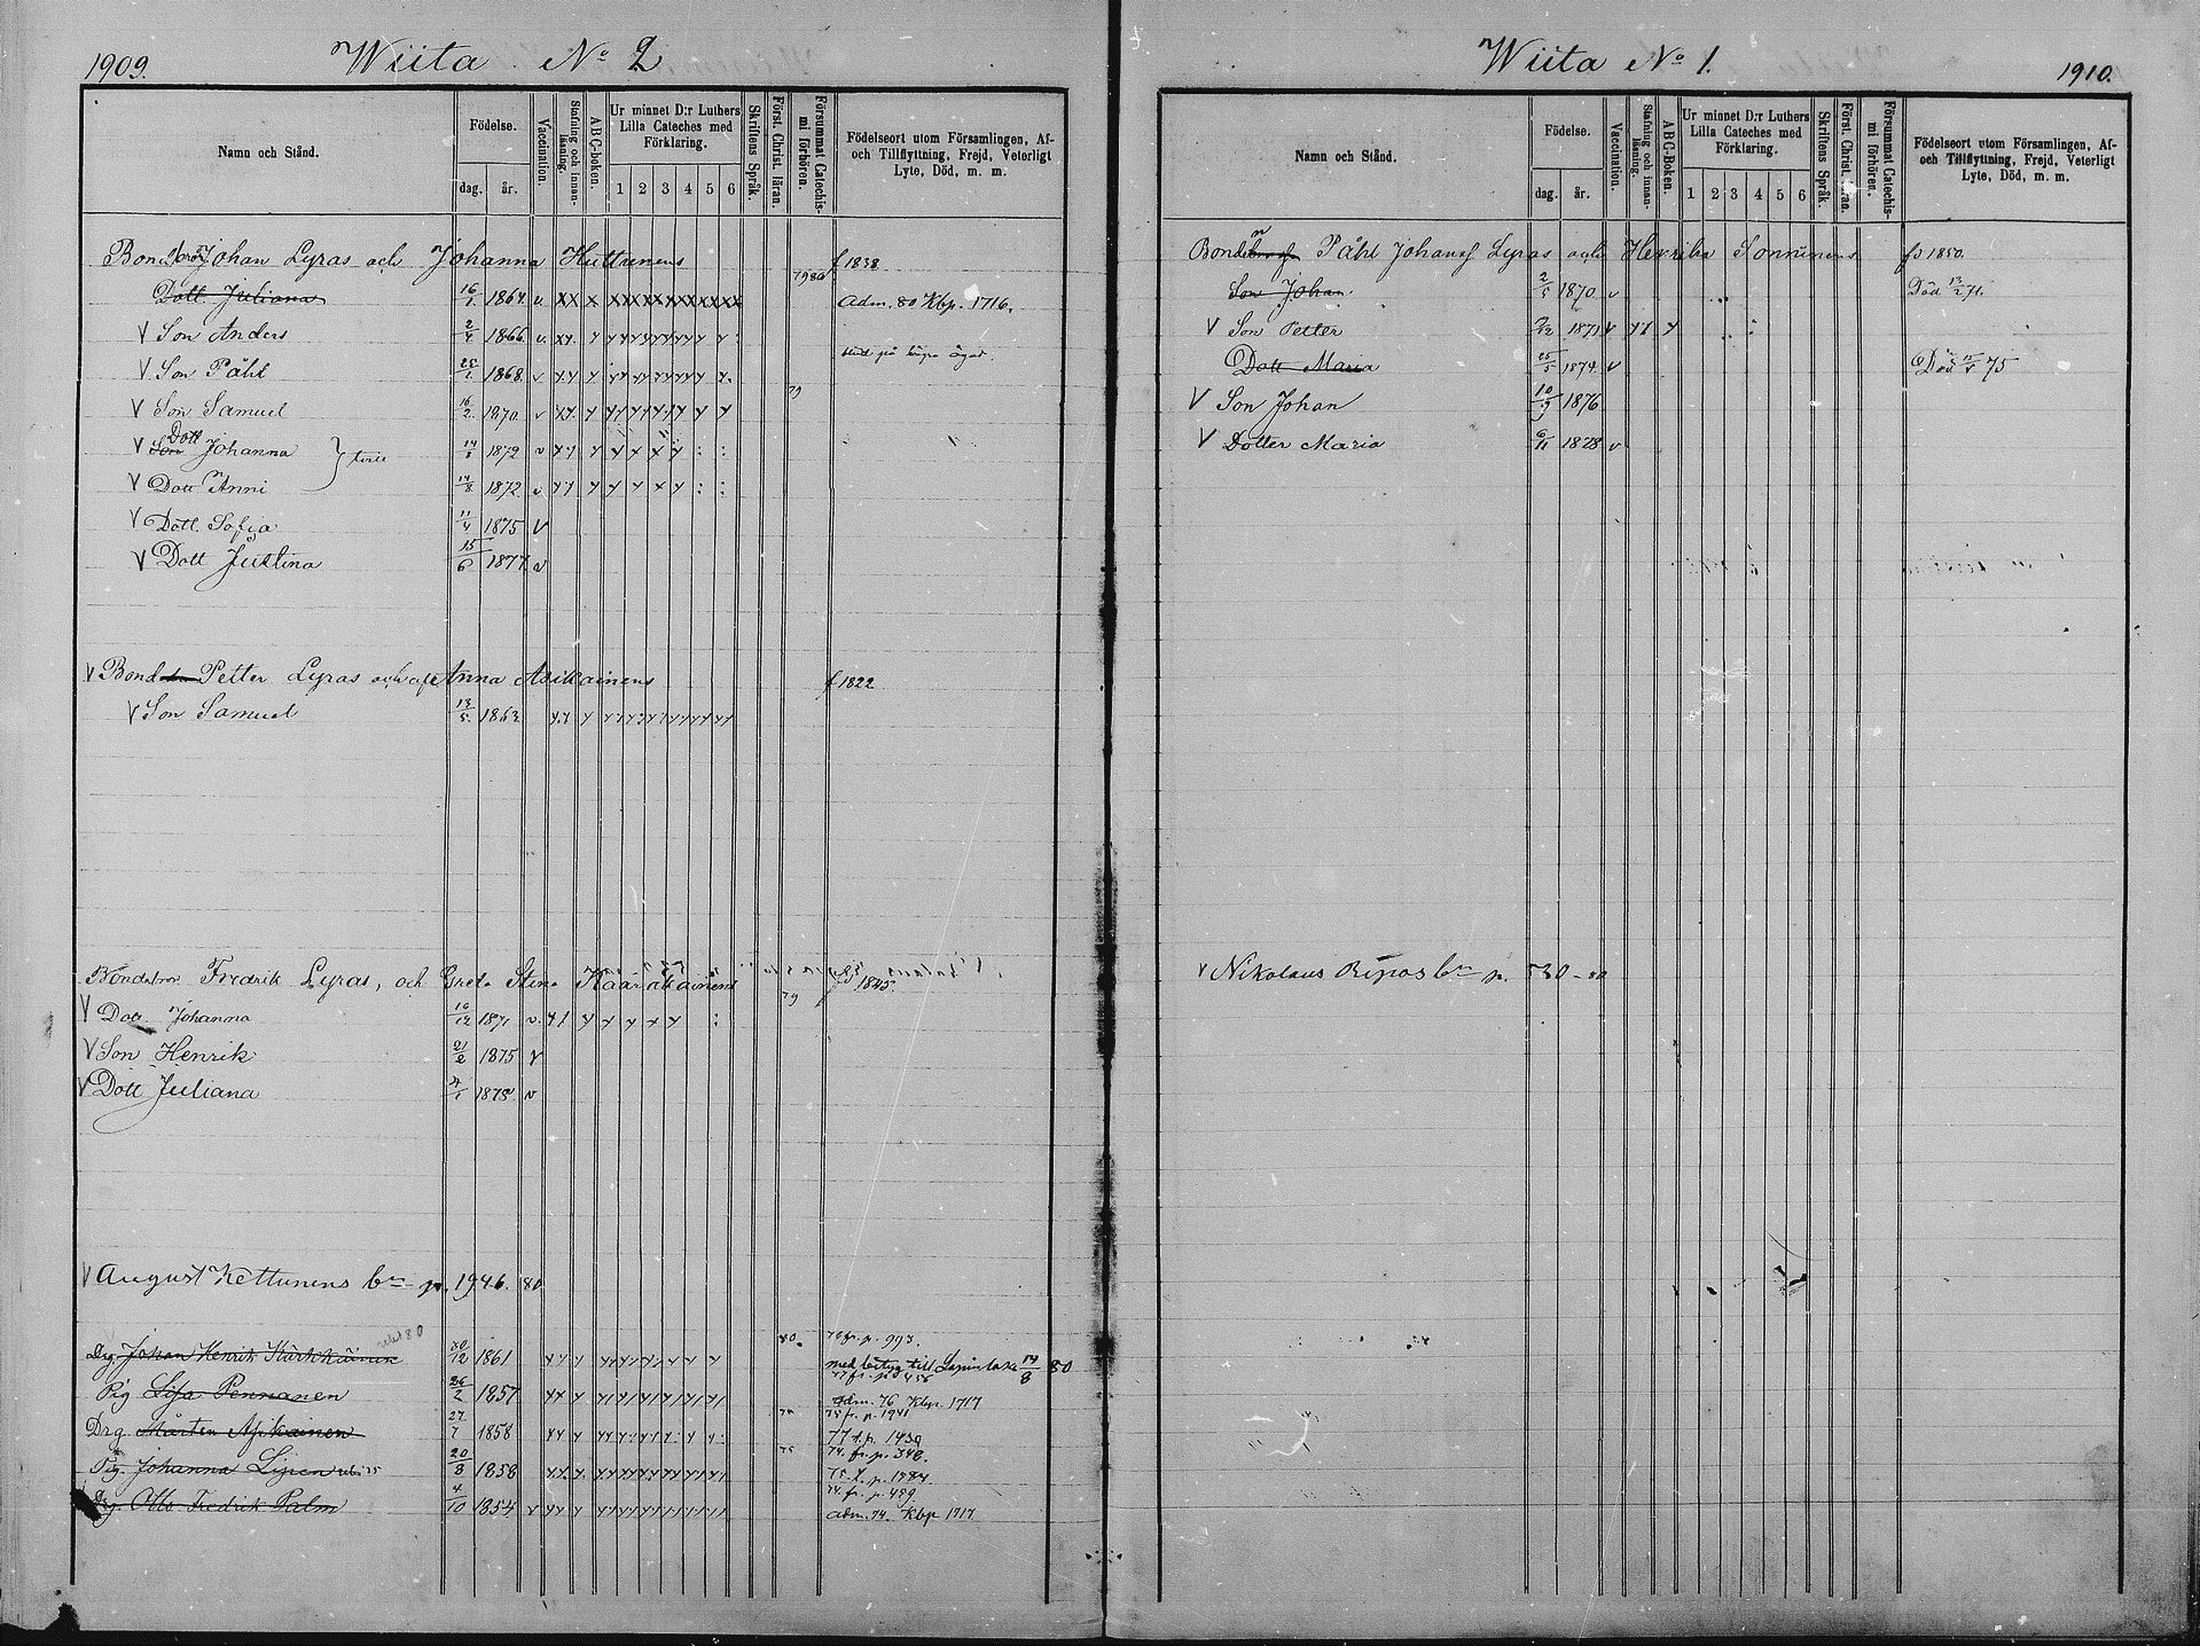 1909.
Wiita No 2
Namn och Stånd.
Födelse.
dag. år.
Vaccination.
Stafning och innan-läsning.
ABC-boken.
Ur minnet D:r Luthers Lilla Cateches med Förklaring.
1 2 3 4 5 6
Skriftens Språk.
Först. Christ. läran.
Försummat Catechis-mi förhören.
Födelseort utom Församlingen, Af- och Tillflyttning, Frejd, Veterligt Lyte, Död, m. m.
Bond Johan Lyras och Johanna Huttunens f 1838
Dott. Juliana 16/1 1864. v. Adm. 80 Kbp. 1716.
V Son Anders 2/4 1866. v.
V Son Påhl 1868. v 79
V Son Samuel 16/2 1870. v
V Dott Johanna 1872 v
V Dott Anni 14/8 1872. v
V Dott. Sofia 11/4 1875 V
V Dott Justina 15/6 1877. v
V Bond Petter Lyras och Anna Asikainens f 1822
V Son Samuel 13/5 1863
Bondebror Fredrik Lyras, och Greta Stina Kaarakainens 1845. 79
V Dott. Johanna 16/12 1871 v.
V Son Henrik 21/2 1875 V
V Dott Juliana 4/1 1878 v
V August Kettunens bn p. 1946. 80
Drg. Johan Henrik Kärkkäinen 30/12 1861 80. 78 fr. p. 993.
med betyg till Lapinlaks 14/8 80
Pig Lisa Pennanen 26/2 1857 adm. 76 Kbp. 1717
Drg. Mårten Asikainen 27/7 1858 75 fr. p. 1941
77 t.p. 1430
Pig. Johanna Lipen 20/8 1858 75 74. fr. p. 348.
75. t. p. 1784.
Drg. Otto Fredrik Palm 4/10 1854 v 74. fr. p. 489
adm. 74. Kbp 1717
Wiita No 1.
1910.
Namn och Stånd.
Födelse.
dag. år.
Vaccination.
Stafning och innan-läsning.
ABC-boken.
Ur minnet D:r Luthers Lilla Cateches med Förklaring.
1 2 3 4 5 6
Skriftens Språk.
Först. Christ. läran.
Försummat Catechis-mi förhören.
Födelseort utom Församlingen, Af- och Tillflyttning, Frejd, Veterligt Lyte, Död, m. m.
Bonden Påhl Johans Lyras och Henrika Sonninens 1850.
Son Johan 2/5 1870 v Död 12/2 71.
V Son Petter 1871 v
Dott Maria 25/5 1874. v Död 75
V Son Johan 10/9 1876
V Dotter Maria 6/11 1878 v
v Nikolaus Repos bn p. 530 - 80